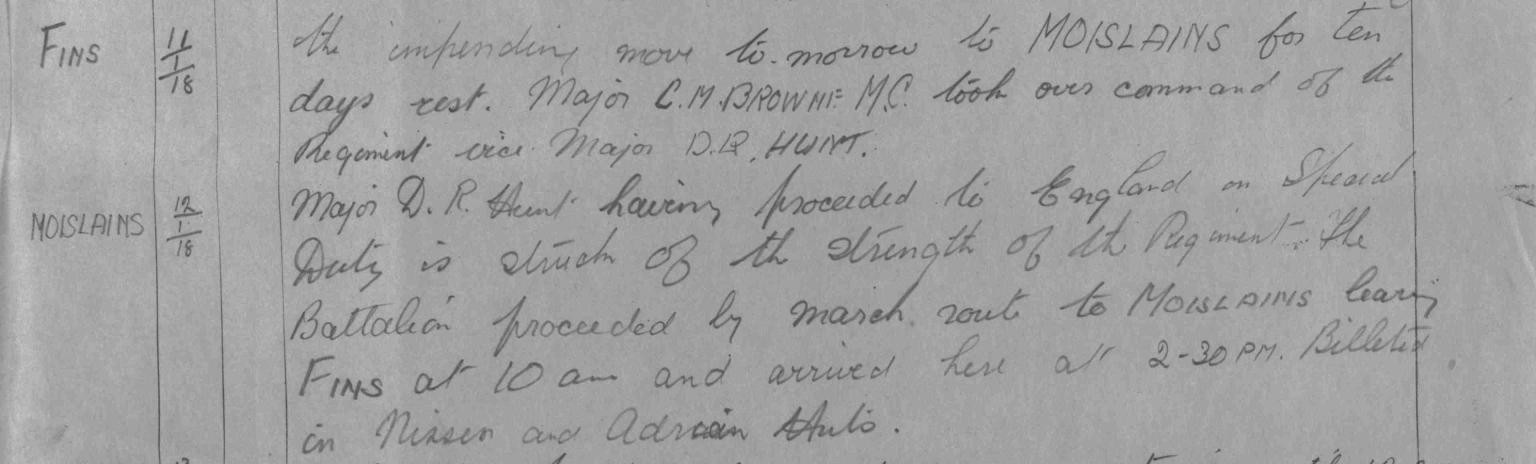 FINS 11/1/18 the impending move to-morrow to MOISLAINS for ten
days rest. Major C.M. BROWNE M.C. took over command of the
Regiment vice Major D.R. HUNT.
MOISLAINS 12/1/18 Major D. R. Hunt having proceeded to England on Special
Duty is struck of the strength of the Regiment. The
Battalion proceeded by march route to MOISLAINS leaving
FINS at 10 am and arrived here at 2-30 PM. Billeted
in Nissen and Adrian Huts.